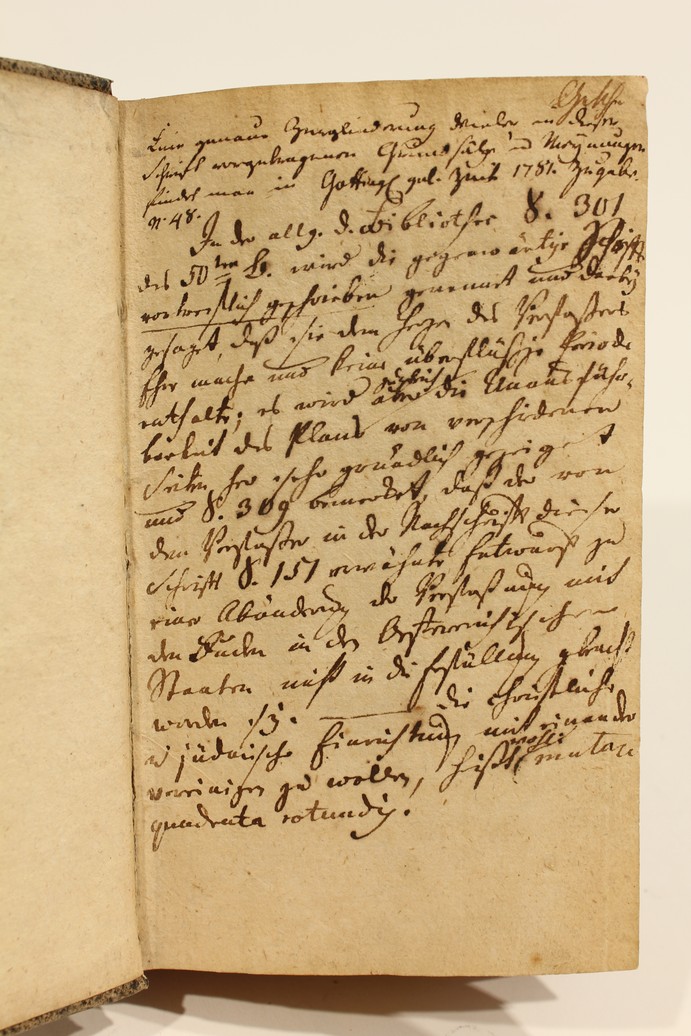 Eine genaue Zergliederung vieler in dieser
Schrift vorgetragenen Grundsätze u Meynungen
findet man in Götting. gel. Zeit 1781. Zugabe.
n. 48.
In der allg. d. Bibliothec S. 301
des 50ten B. wird die gegenwärtige Schrift
vortreflich geschrieben genennet und dabey
gesaget, daß sie dem Herzen des Verfassers
Ehre mache und keine überflüßige Periode
enthalte; es wird aber die Unausführ-
barkeit des Plans von verschiedenen
Seiten her sehr gründlich gezeiget
und S. 309 bemerket, daß der von
dem Verfasser in der Nachschrift dieser
Schrift S. 151 erwähnte Entwurf zu
einer Abänderung der Verfassung mit
den Juden in den Oesterreichischen
Staaten nicht in die Erfüllung gebracht
worden sey. die christliche
u jüdische Einrichtung mit einander
vereinigen zu wollen, hißt wohl mutare
quadrata rotundis.